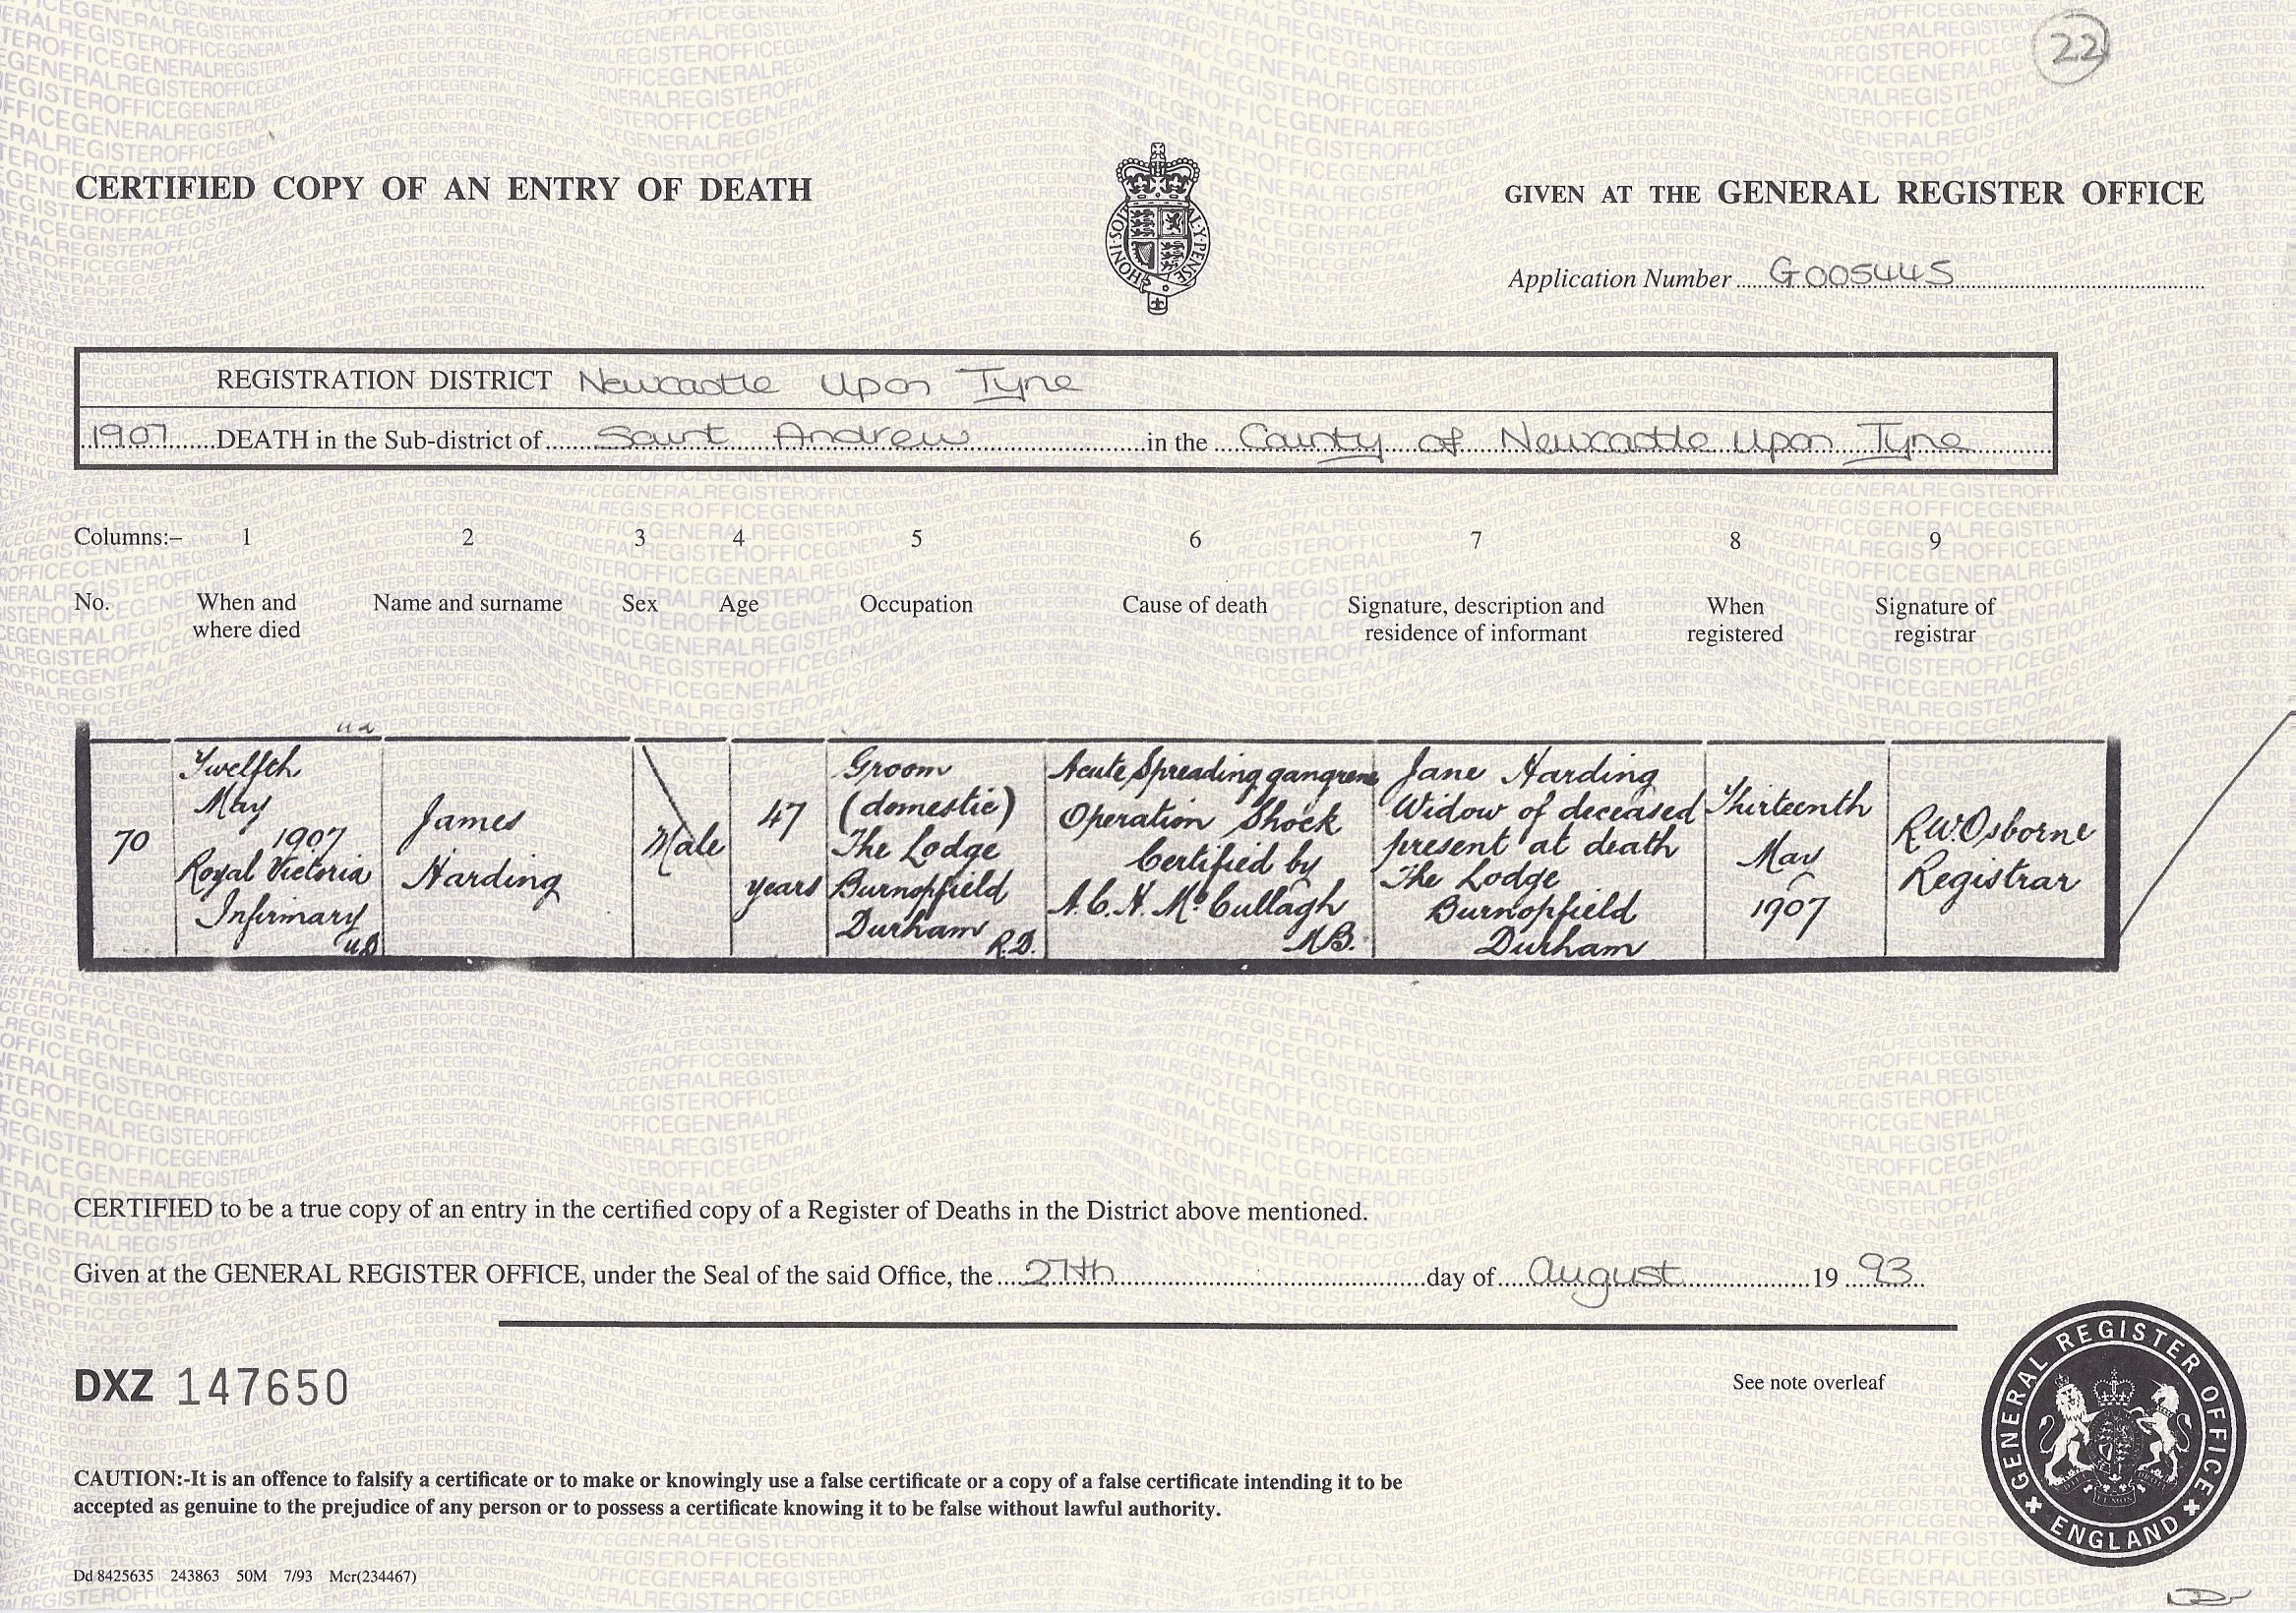 22
CERTIFIED COPY OF AN ENTRY OF DEATH
GIVEN AT THE GENERAL REGISTER OFFICE
Application Number G005445
REGISTRATION DISTRICT Newcastle Upon Tyne
1907 DEATH in the Sub-district of Saint Andrew in the County of Newcastle Upon Tyne
Columns:- 1 2 3 4 5 6 7 8 9
No.
When and
where died
Name and surname
Sex
Age
Occupation
Cause of death
Signature, description and
residence of informant
When
registered
Signature of
registrar
70
Twelfth
May
1907
Royal Victoria
Infirmary
U.D.
James
Harding
Male
47
years
Groom
(domestic)
The Lodge
Burnopfield
Durham
R.D.
Acute Spreading gangrene
Operation Shock
Certified by
A.C.H. McCullagh
M.B.
Jane Harding
Widow of deceased
present at death
The Lodge
Burnopfield
Durham
Thirteenth
May
1907
R.W.Osborne
Registrar
CERTIFIED to be a true copy of an entry in the certified copy of a Register of Deaths in the District above mentioned.
Given at the GENERAL REGISTER OFFICE, under the Seal of the said Office, the 27th day of August 19 93
DXZ 147650
See note overleaf
CAUTION:-It is an offence to falsify a certificate or to make or knowingly use a false certificate or a copy of a false certificate intending it to be
accepted as genuine to the prejudice of any person or to possess a certificate knowing it to be false without lawful authority.
Dd 8425635 243863 50M 7/93 Mcr(234467)
GENERAL REGISTER OFFICE
ENGLAND